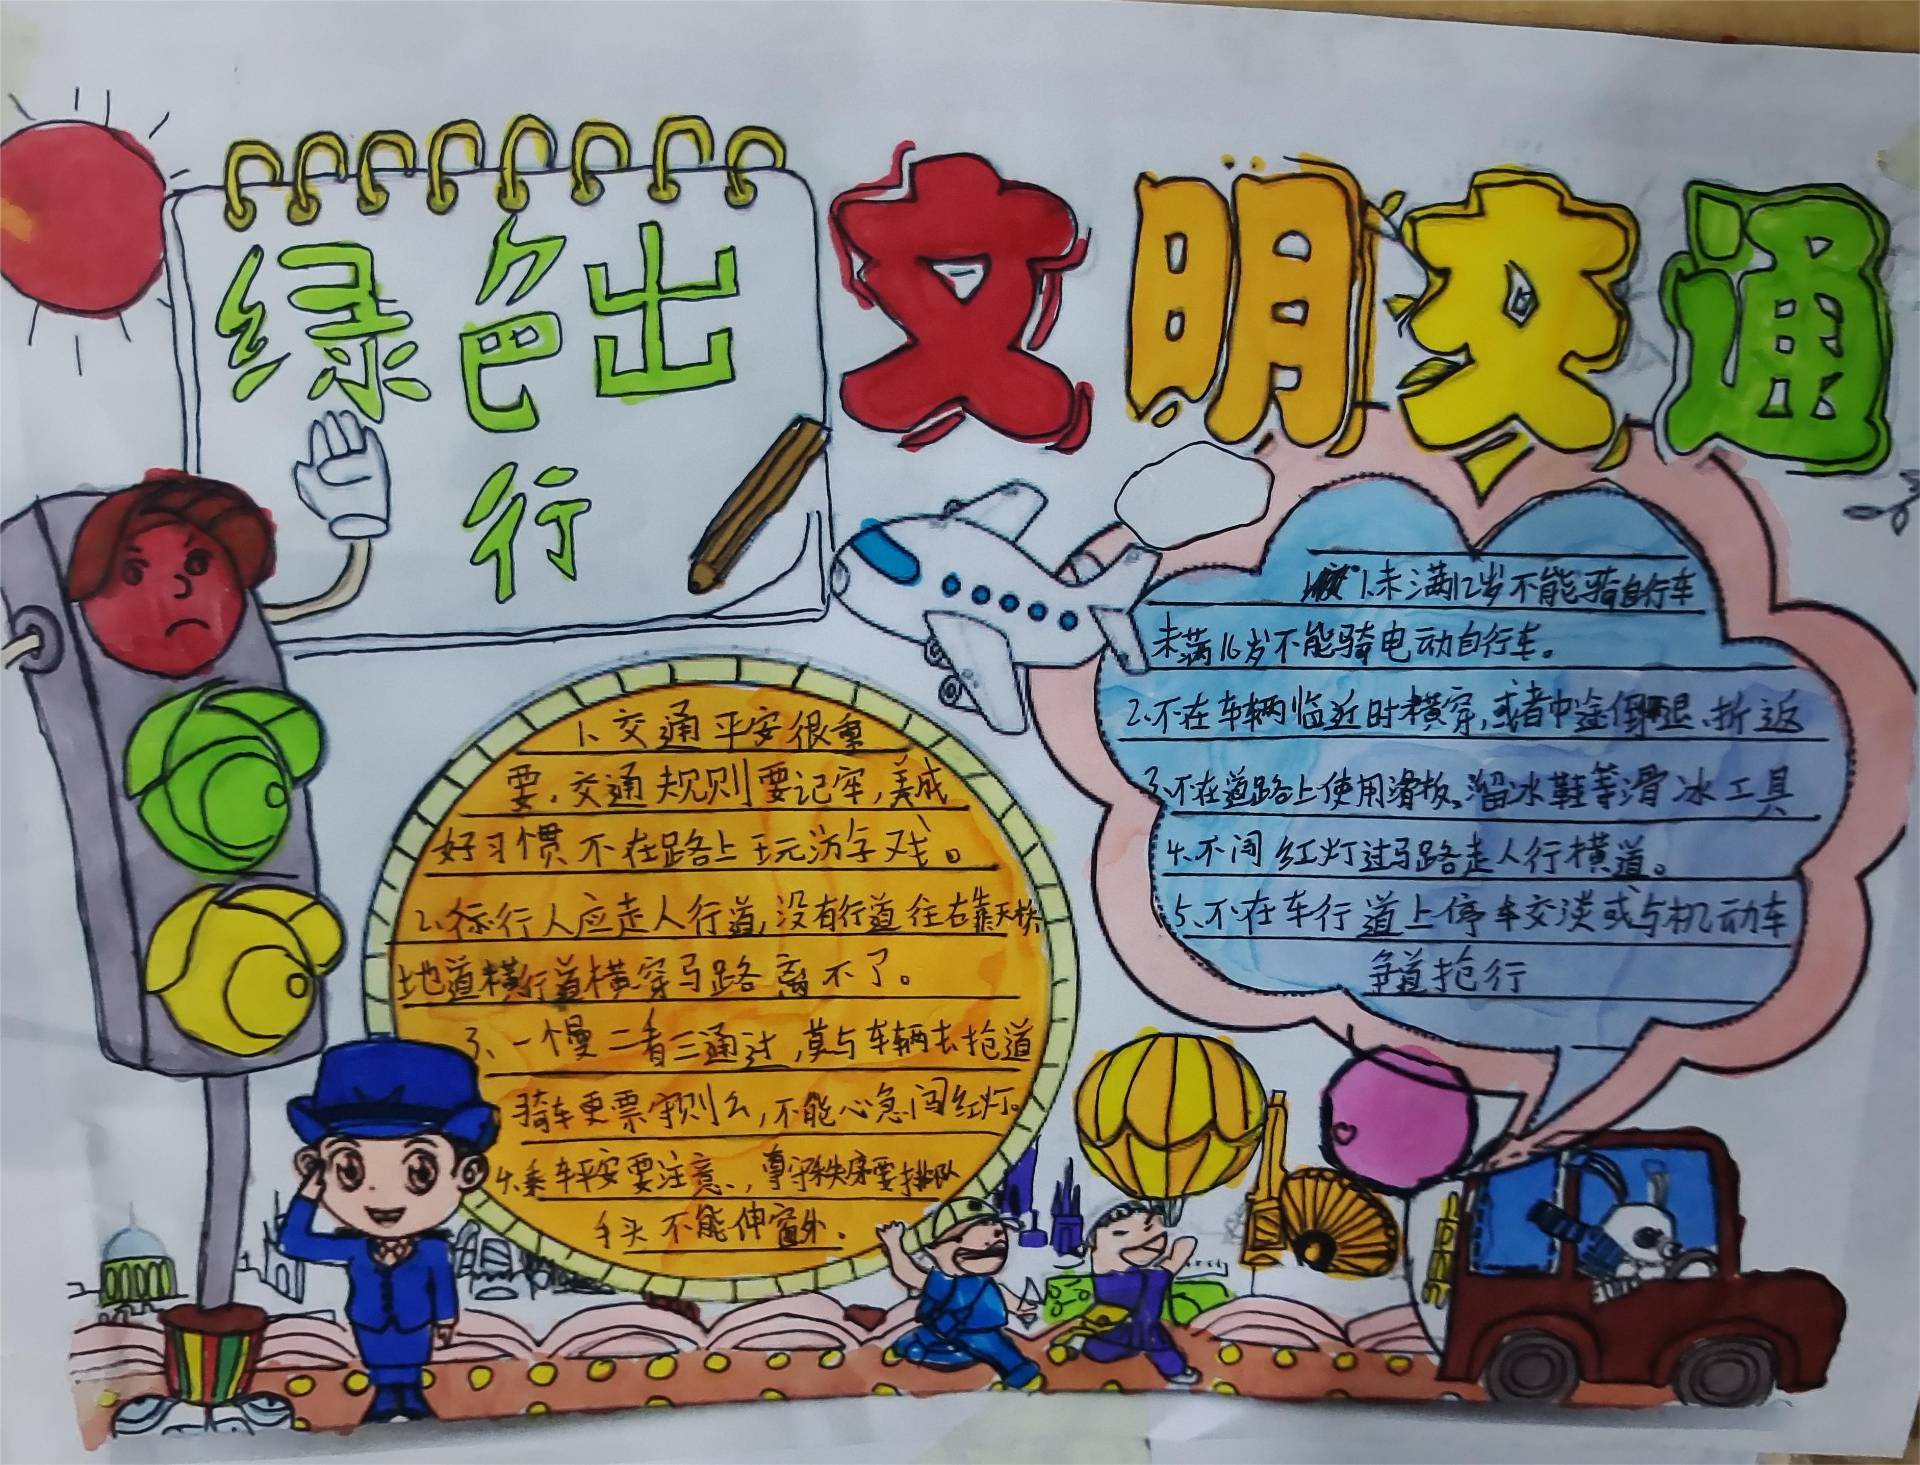 绿色出行
文明交通
1、交通平安很重
要，交通规则要记牢，美成
好习惯不在路上玩游戏。
2、行人应走人行道，没有行道往右靠天桥
地道横行道横穿马路离不了。
3、一慢二看三通过，莫与车辆去抢道
骑车更票守则么，不能心急闯红灯。
4.乘车平安要注意，尊守秩序要排队
手头不能伸窗外。
1.未满12岁不能骑自行车
未满16岁不能骑电动自行车。
2.不在车辆临近时横穿，或者中途倒退、折返
3、不在道路上使用滑板、溜冰鞋等滑冰工具
4、不闯红灯过马路走人行横道。
5、不在车行道上停车交淡或与机动车
争道抢行